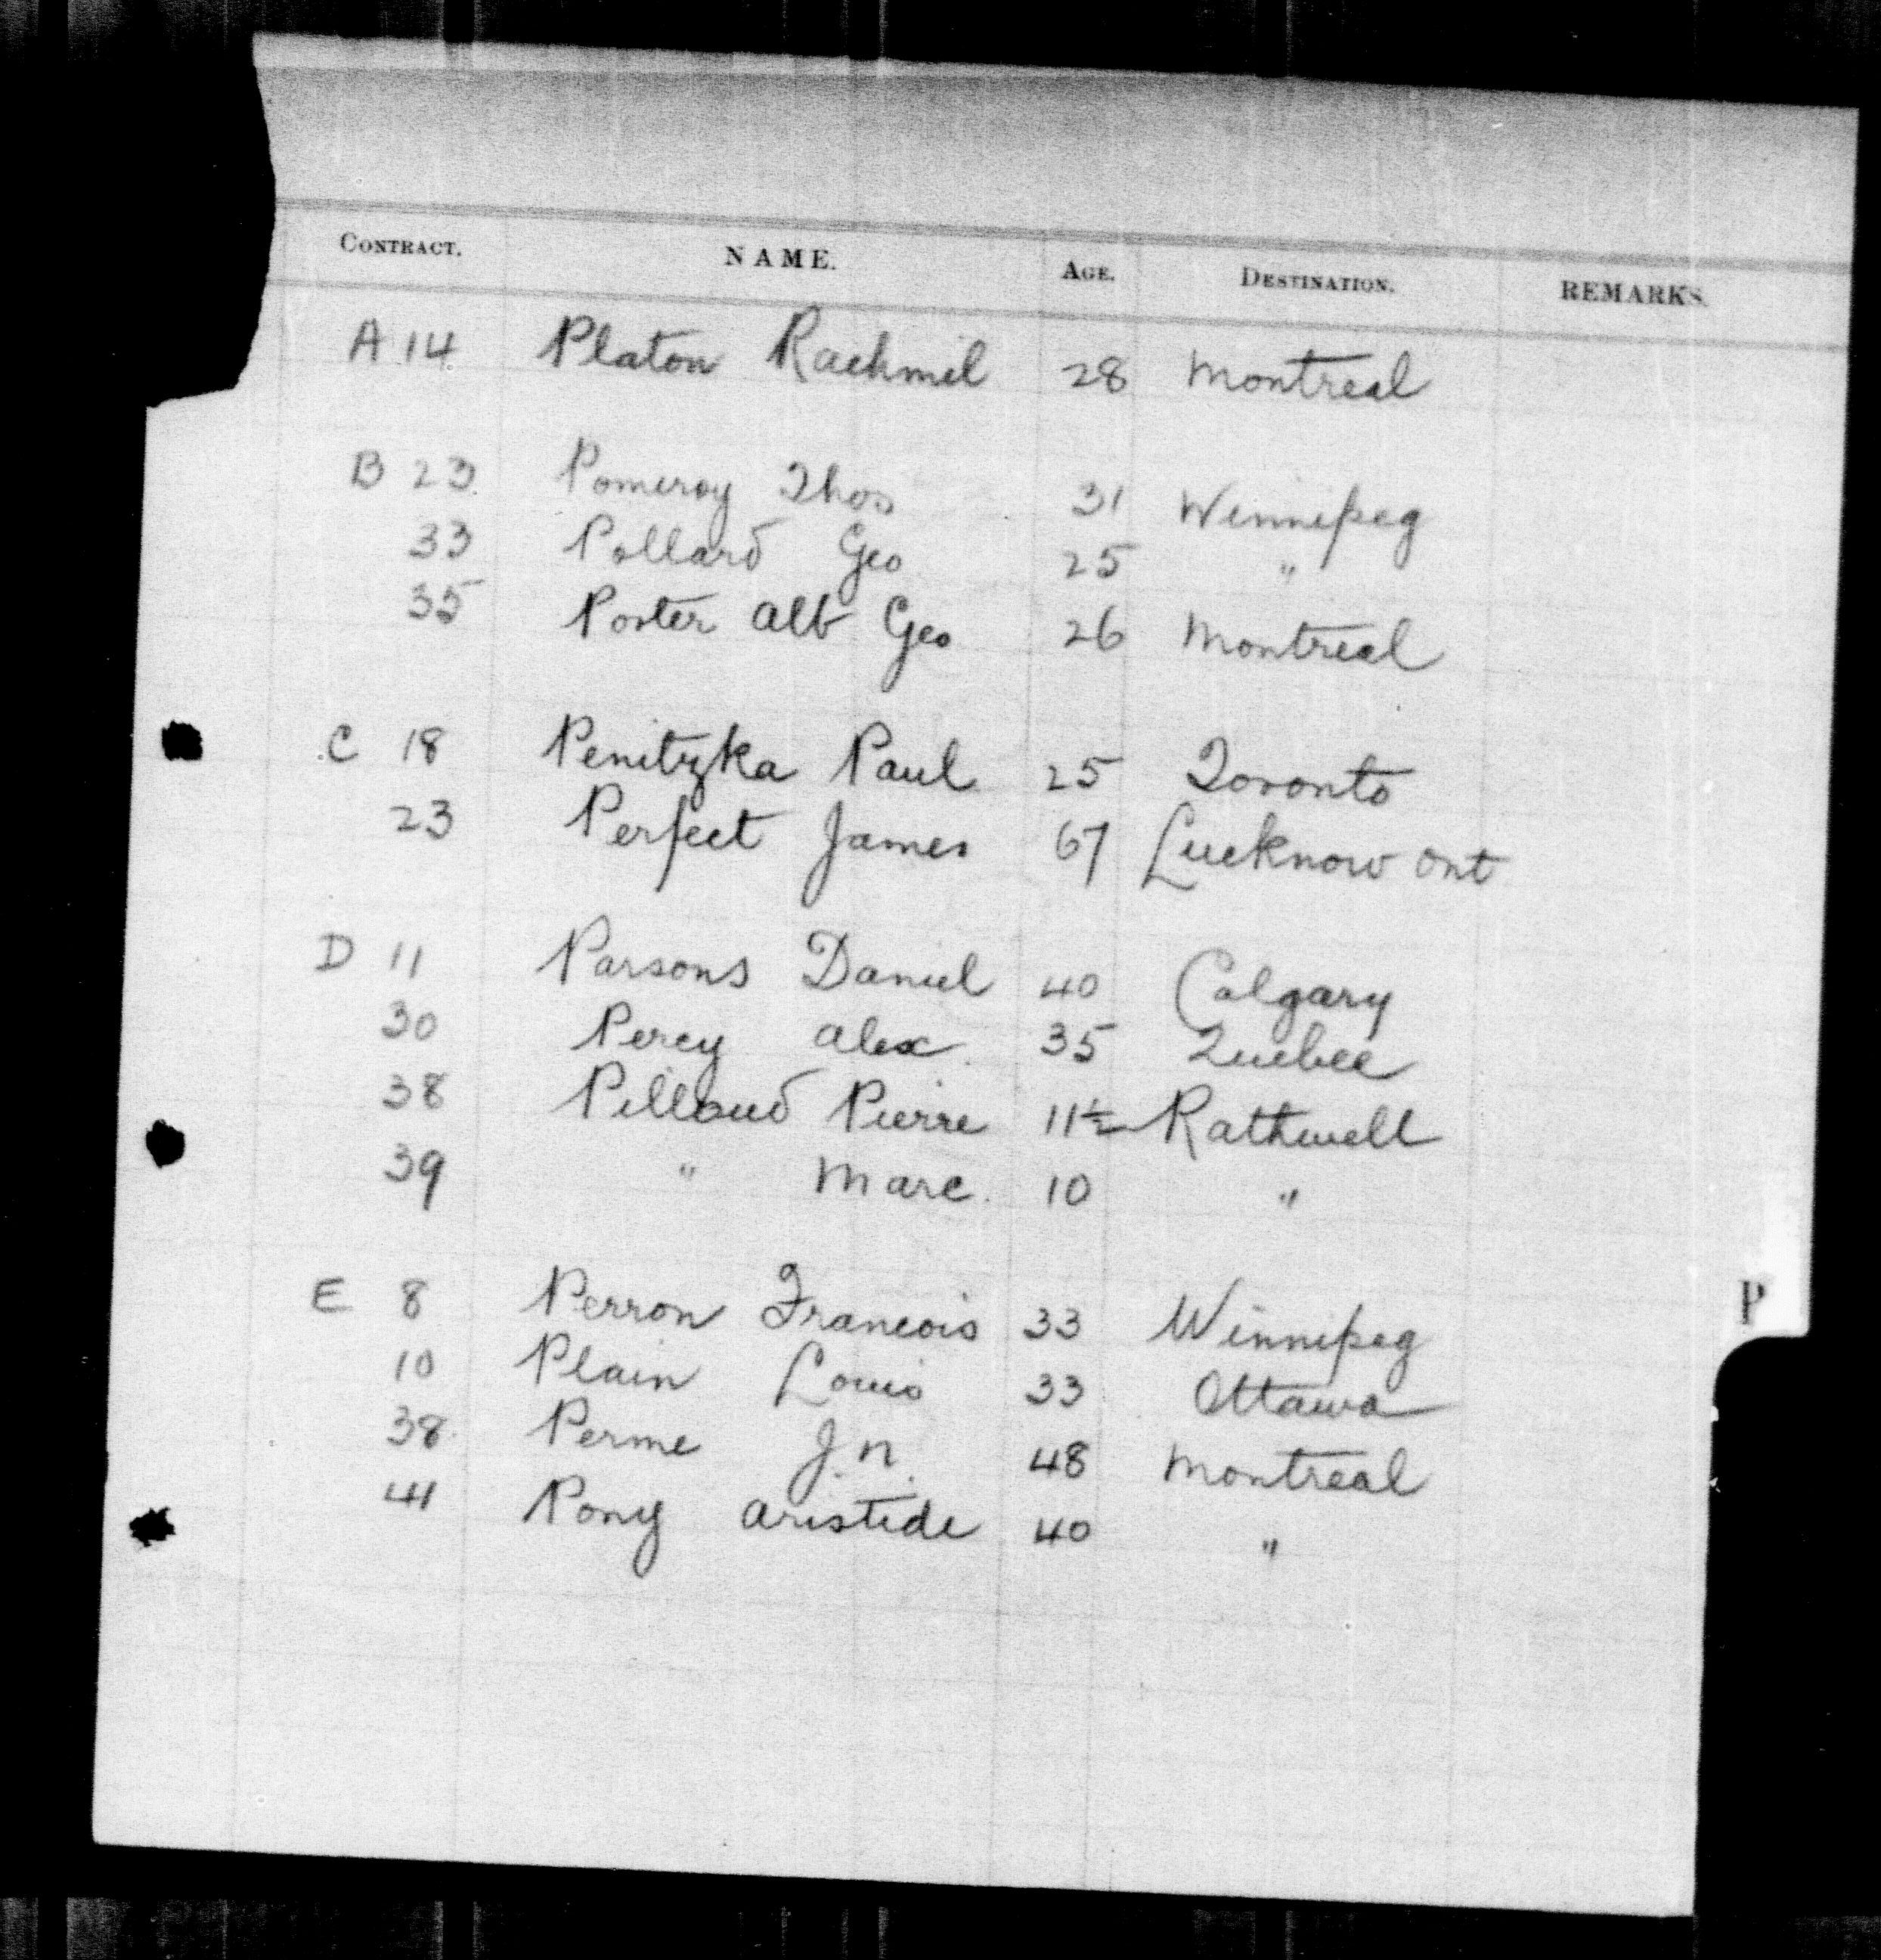 CONTRACT. NAME. AGE. DESTINATION. REMARKS.
A 14 Platon Rachmil 28 Montreal
B 23 Pomeroy Thos 31 Winnipeg
33 Pollard Geo 25 "
35 Porter Alb Geo 26 Montreal
C 18 Penitzka Paul 25 Toronto
23 Perfect James 67 Lucknow Ont
D 11 Parsons Daniel 40 Calgary
30 Percy Alex. 35 Quebec
38 Pilloud Pierre 11½ Rathwell
39 " Marc. 10 "
E 8 Perron Francois 33 Winnipeg
P
10 Plain Louis 33 Ottawa
38 Perme J.N. 48 Montreal
41 Pony Aristide 40 "